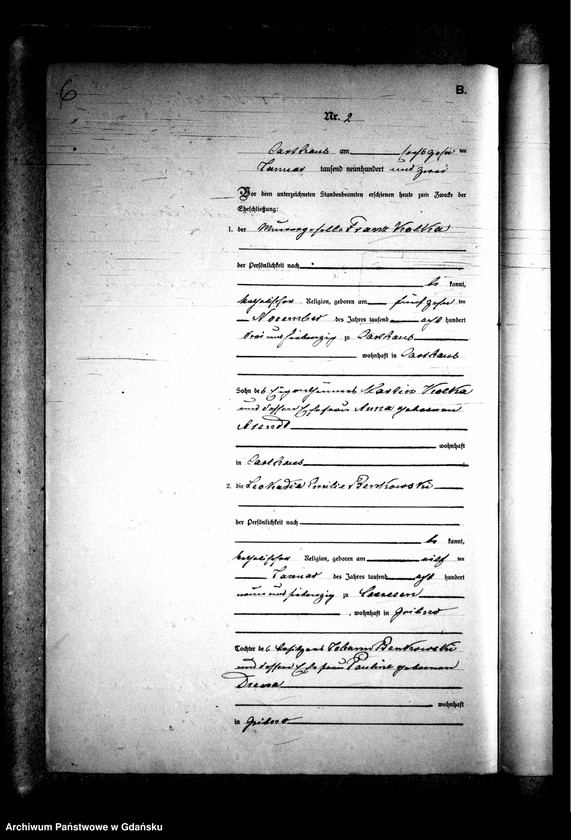 6
B.
Nr. 2
Carthaus am sechszehn ten
Januar tausend neunhundert und zwei
Vor dem unterzeichneten Standesbeamten erschienen heute zum Zwecke der
Eheschließung:
1. der Maurergeselle Franz Kolka
der Persönlichkeit nach
be kannt,
katholischer Religion, geboren am fünfzehn ten
November des Jahres tausend acht hundert
drei und siebenzig zu Carthaus
wohnhaft in Carthaus
Sohn des Eigenthümers Martin Kolka
und dessen Ehefrau Anna geborenen
Arendt
wohnhaft
in Carthaus
2. die Leokadia Emilie Benkowski
der Persönlichkeit nach
be kannt,
katholischer Religion, geboren am elf ten
Januar des Jahres tausend acht hundert
neun und siebenzig zu
, wohnhaft in Gribno
Tochter des Besitzers Johann Benkowski
und dessen Ehefrau Pauline geborenen
wohnhaft
in Gribno
Archiwum Państwowe w Gdańsku